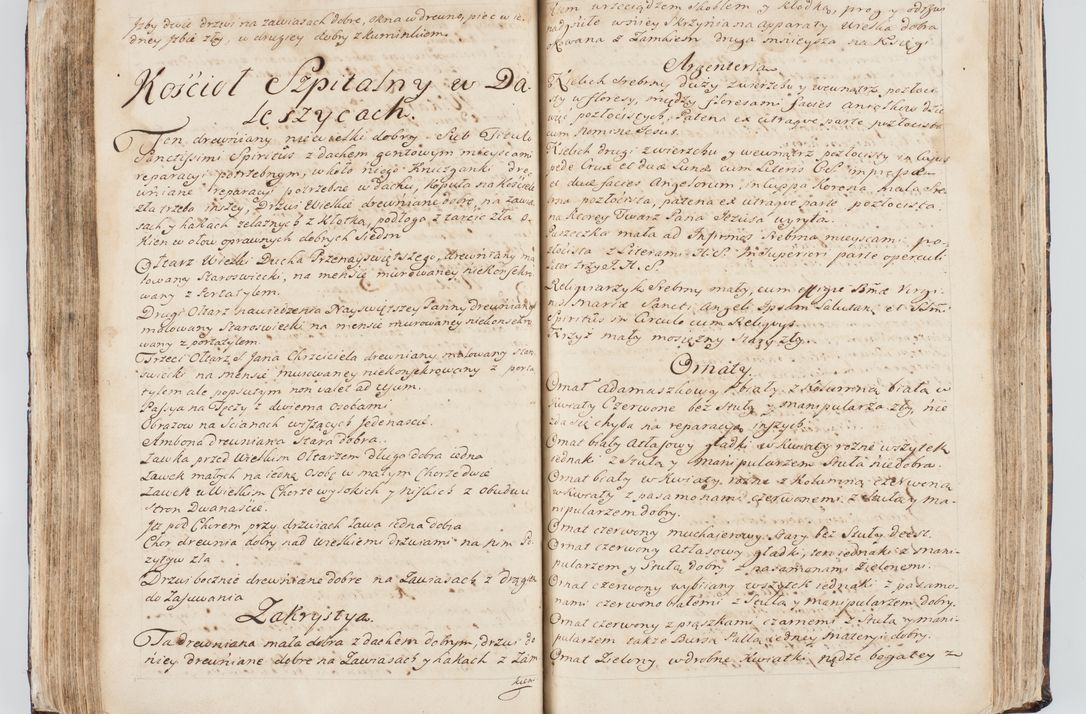 Izby dwie drzwi na zawiasach dobre, okna w drewno, piec w ie-
dney Izbie zły, w drugiey dobry z kuminkiem.
Kościoł Szpitalny w Da-
leszycach.
Ten drewniany niewielki dobry Sub Titulo
Sanctissimi Spiritus z dachem gontowym mieyscami
reparacyi potrzebnym, wkoło niego Kruzganki dre-
wniane reparacyi potrzebne w dachu, kopuła na kościele
zła trzeba inszey, Drzwi Wielkie drewniane dobre, na zawia-
sach y hakach zelaznych z Klotką, podłoga z tarcic zła o-
kien w ołow oprawnych dobrych Siedm
Ołtarz Wielki Ducha Przenayświętszego, drewniany ma-
lowany Staroswiecki, na mensie murowaney niekonsekro-
wany z Portatylem.
Drugi Ołtarz nawiedzenia Nayswiętszey Panny drewniany
malowany Staroswiecki na mensie murowaney niekonsekro-
wany z portatylem.
Trzeci Ołtarz S. Jana Chrzciciela drewniany malowany staro-
swiecki na mensie murowaney niekonsekrowany z porta-
tylem ale popsutym non valet ad usum.
Passya na Tęczy z dwiema osobami
Obrazow na Scianach wiszących Jedenascie.
Ambona drewniana Stara dobra.
Ławka przed Wielkim Ołtarzem długa dobra iedna
Ławek małych na iednę Osobę w małym Chorze dwie
Ławek w Wielkim Chorze wysokich y niskich z obudwu
Stron Dwanascie.
Itt pod Chorem przy drzwiach ława iedna dobra
Chor drewnia dobry nad wielkiemi drzwiami na nim Po-
zytyw zły
Drzwi boczne drewniane dobre na Zawiasach z drągiem
do Zasuwania
Zakrystya.
Ta drewniana mała dobra z dachem dobrym, drzwi do
niey drewniane dobre na Zawiasach y hakach z Zam-
kiem
tym wrzeciądzem Skoblem y kłodką, prog y odrzwi
nadgniłe w niey Skrzynia na apparaty wielka dobra
okowana z Zamkiem druga mnieysza na Księgi
Argenteria.
Kielich Srebrny duży zwierzchu y wewnątrz pozłoci-
sty w floresy, między floresami facies Aniołkow dzie-
więć pozłocistych, Patena ex utraque parte pozłocista
cum Nomine Jesus.
Kielich drugi zwierzchu y wewnątrz pozłocisty in cuius
pede Crux et duæ Lunæ cum Literis impressæ
et duæ facies Angelorum, in cuppa Korona mała Sre-
brna pozłocista, patena ex utraque parte pozłocista
na ktorey Twarz Pana Jezusa wyryta.
Puszeczka mała ad Infirmos Srebrna mieyscami po-
złocista z Literami H. S. In Superiori parte operculi
liter trzy I. H. S.
Religuiarzyk Srebrny mały, cum effigie Bmæ Virgi-
nis Mariæ Sancti Angeli Ipsam Salutantis et Smi
Spiritus in Circulo cum Religuys.
Krzyż mały mosiężny Stary zły.
Ornaty.
Ornat adamaszkowy biały z Kolumną białą w
kwiaty Czerwone bez Stuły y manipularza zły, nie
zda się chyba na reparacyą inszych.
Ornat biały Atłasowy gładki w kwiaty rozne wszytek
iednaki z Stułą y manipularzem Stuła niedobra.
Ornat biały w kwiaty rozne z kolumną czerwoną
w kwiaty z pasamonami czerwonemi z Stułą y ma-
nipularzem dobry.
Ornat czerwony muchajerowy Stary bez Stuły, deest.
Ornat czerwony Atłasowy gładki, ten iednaki z mani-
pularzem y Stułą dobry z pasamonami Zielonemi.
Ornat czerwony wybiiany wszytek iednaki z pasamo-
nami czerwono białemi z Stułą y manipularzem dobry.
Ornat czerwony z ptaszkami czarnemi z Stułą y mani-
pularzem także Bursa Palla iedney materyi dobry.
Ornat Zielony w drobne Kwiatki nędze bogatey z